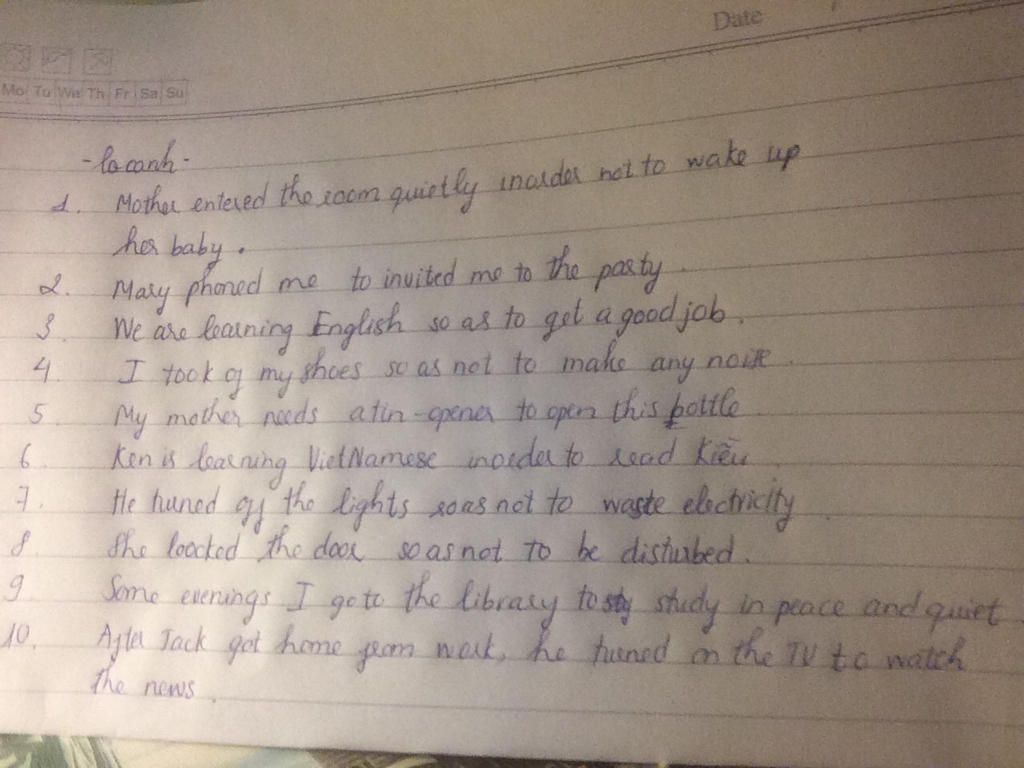 Date
Mo Tu We Th Fr Sa Su
1. Mother entered the room quietly inorder not to wake up
her baby.
2. Mary phoned me to invited me to the party.
3 We are learning English so as to get a good job.
4. I took of my shoes so as not to make any noise.
5 My mother needs a tin-opener to open this bottle
6 Ken is learning VietNamese inorder to read Kiều
7. He tuned off the lights soas not to waste electricity.
8 She loocked the door so as not to be disturbed.
9 Some evenings I go to the library to study in peace and quiet.
10. After Jack got home from work, he turned on the TV to watch
the news.